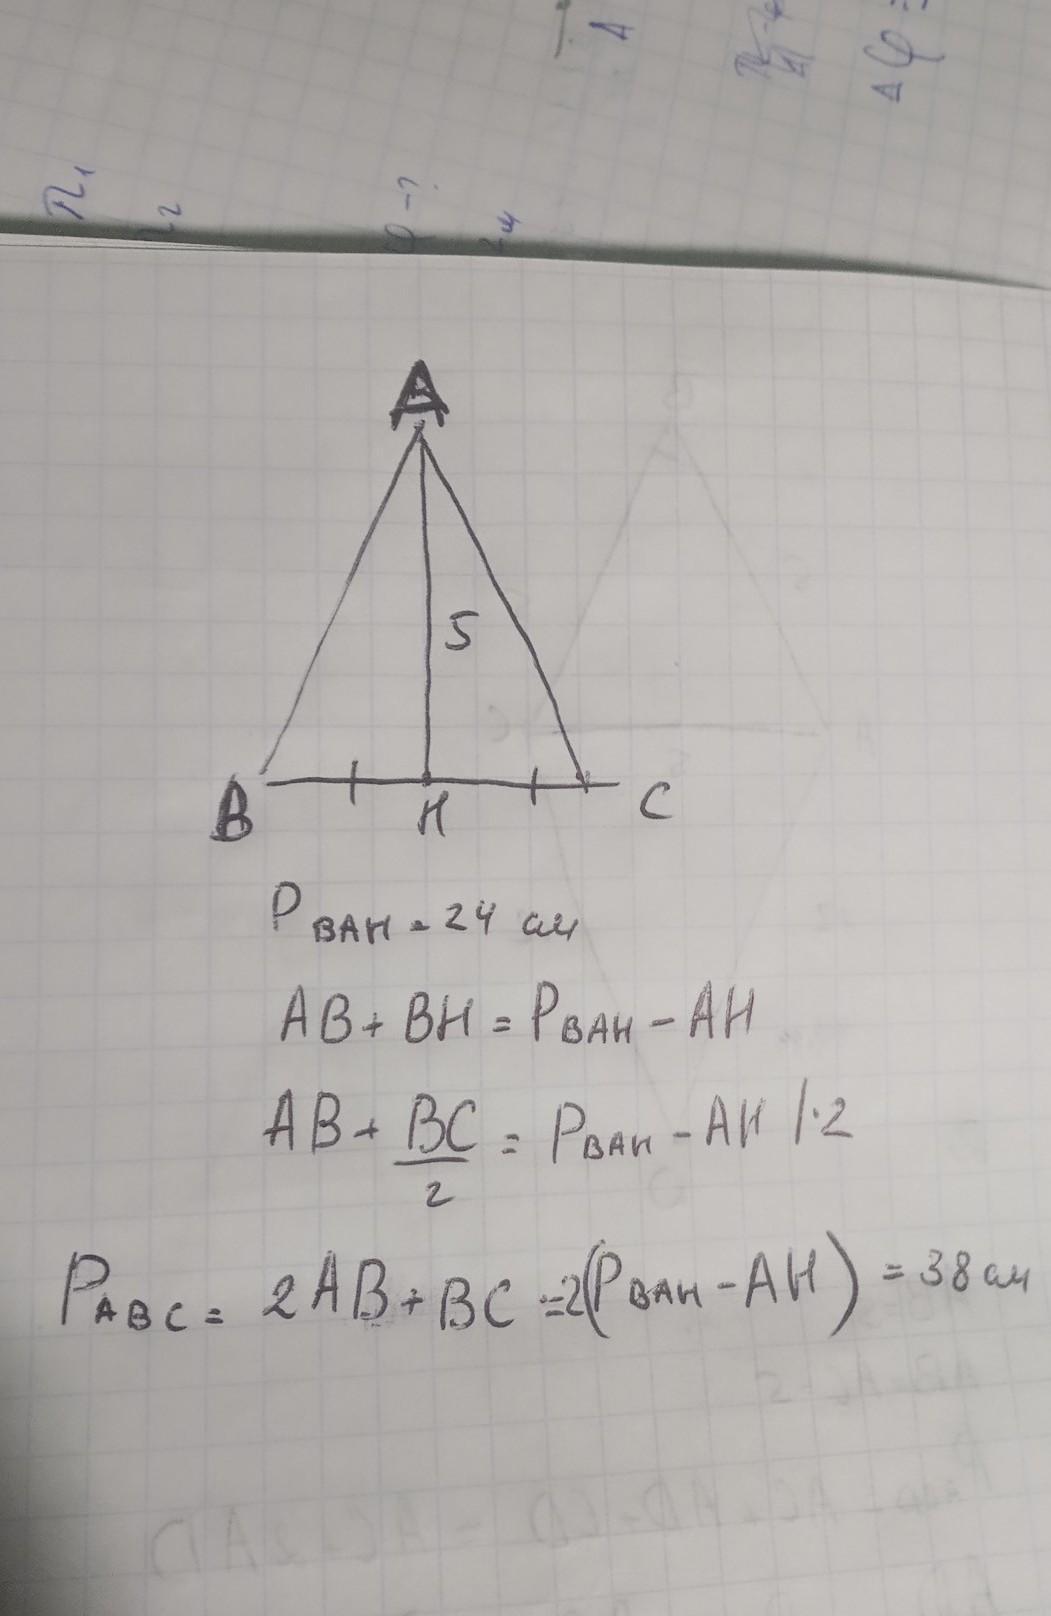 π₁
φ-?
Δφ =
A
5
B H C
P_BAH = 24 см
AB + BH = P_BAH - AH
AB + BC/2 = P_BAH - AH |·2
P_ABC = 2AB + BC = 2(P_BAH - AH) = 38 см